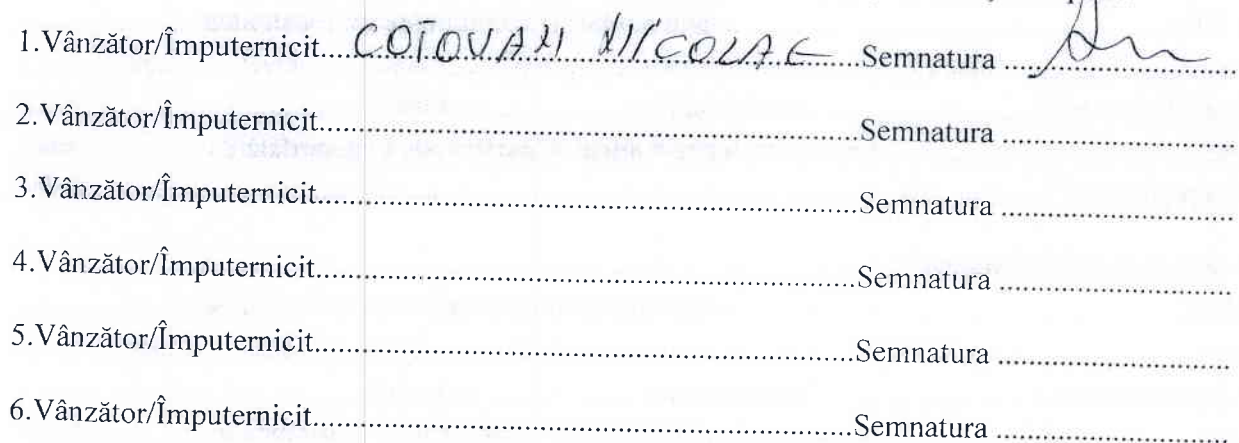 1.Vânzător/Împuternicit....COTOVAN NICOLAE....Semnatura ....................
2.Vânzător/Împuternicit....................Semnatura ....................
3.Vânzător/Împuternicit....................Semnatura ....................
4.Vânzător/Împuternicit....................Semnatura ....................
5.Vânzător/Împuternicit....................Semnatura ....................
6.Vânzător/Împuternicit....................Semnatura ....................